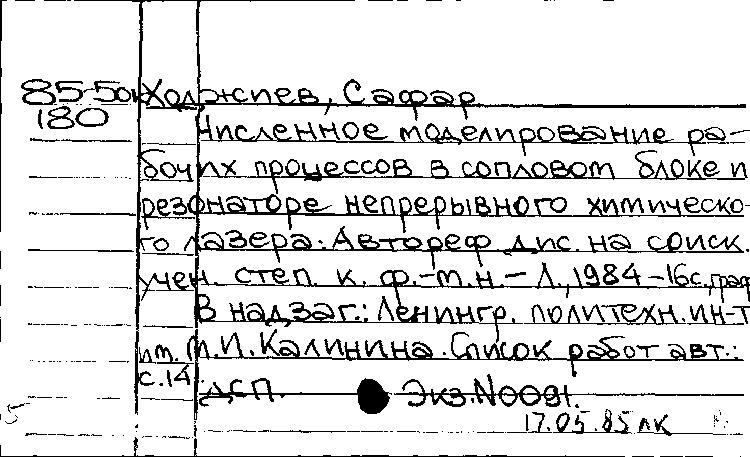 85-50к Ходжиев, Сафар
180
Численное моделирование ра-
бочих процессов в сопловом блоке и
резонаторе непрерывного химическо-
го лазера: Автореф. дис. на соиск.
учен. степ. к. ф.-м.н. - Л., 1984 - 16с., граф
В надзаг.: Ленингр. политехн. ин-т
им. М.И. Калинина. Список работ авт.:
с.14
ДСП. Экз.N0091.
17.05.85 лк